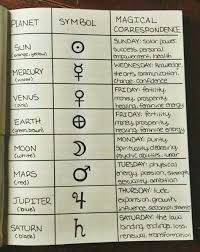 PLANET SYMBOL MAGICAL
CORRESPONDENCE
SUN
(orange, yellow)
SUNDAY: solar power,
success, personal
empowerment, health
MERCURY
(white)
WEDNESDAY: knowledge,
the arts, communication,
change, confidence
VENUS
(pink)
FRIDAY: fertility,
money, prosperity,
healing, feminine energy
EARTH
(green, brown)
FRIDAY: fertility,
money, prosperity,
healing, feminine energy
MOON
(white)
MONDAY: purity,
spirituality, cleansing
psychic abilities, lunar
MARS
(red)
TUESDAY: physical
energy, passion, strength,
sexuality, ambition
JUPITER
(blue)
THURSDAY: luck,
expansion, growth,
influence, accomplishments
SATURN
(black)
SATURDAY: the law,
binding, endings, loss,
renewal, transformation